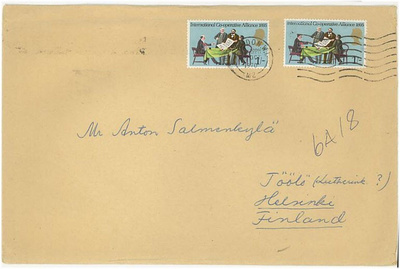 International Co-operative Alliance 1895
International Co-operative Alliance 1895
Mr Anton Salmenkylä
6A18
Töölö (Katherine ?)
Helsinki
Finland